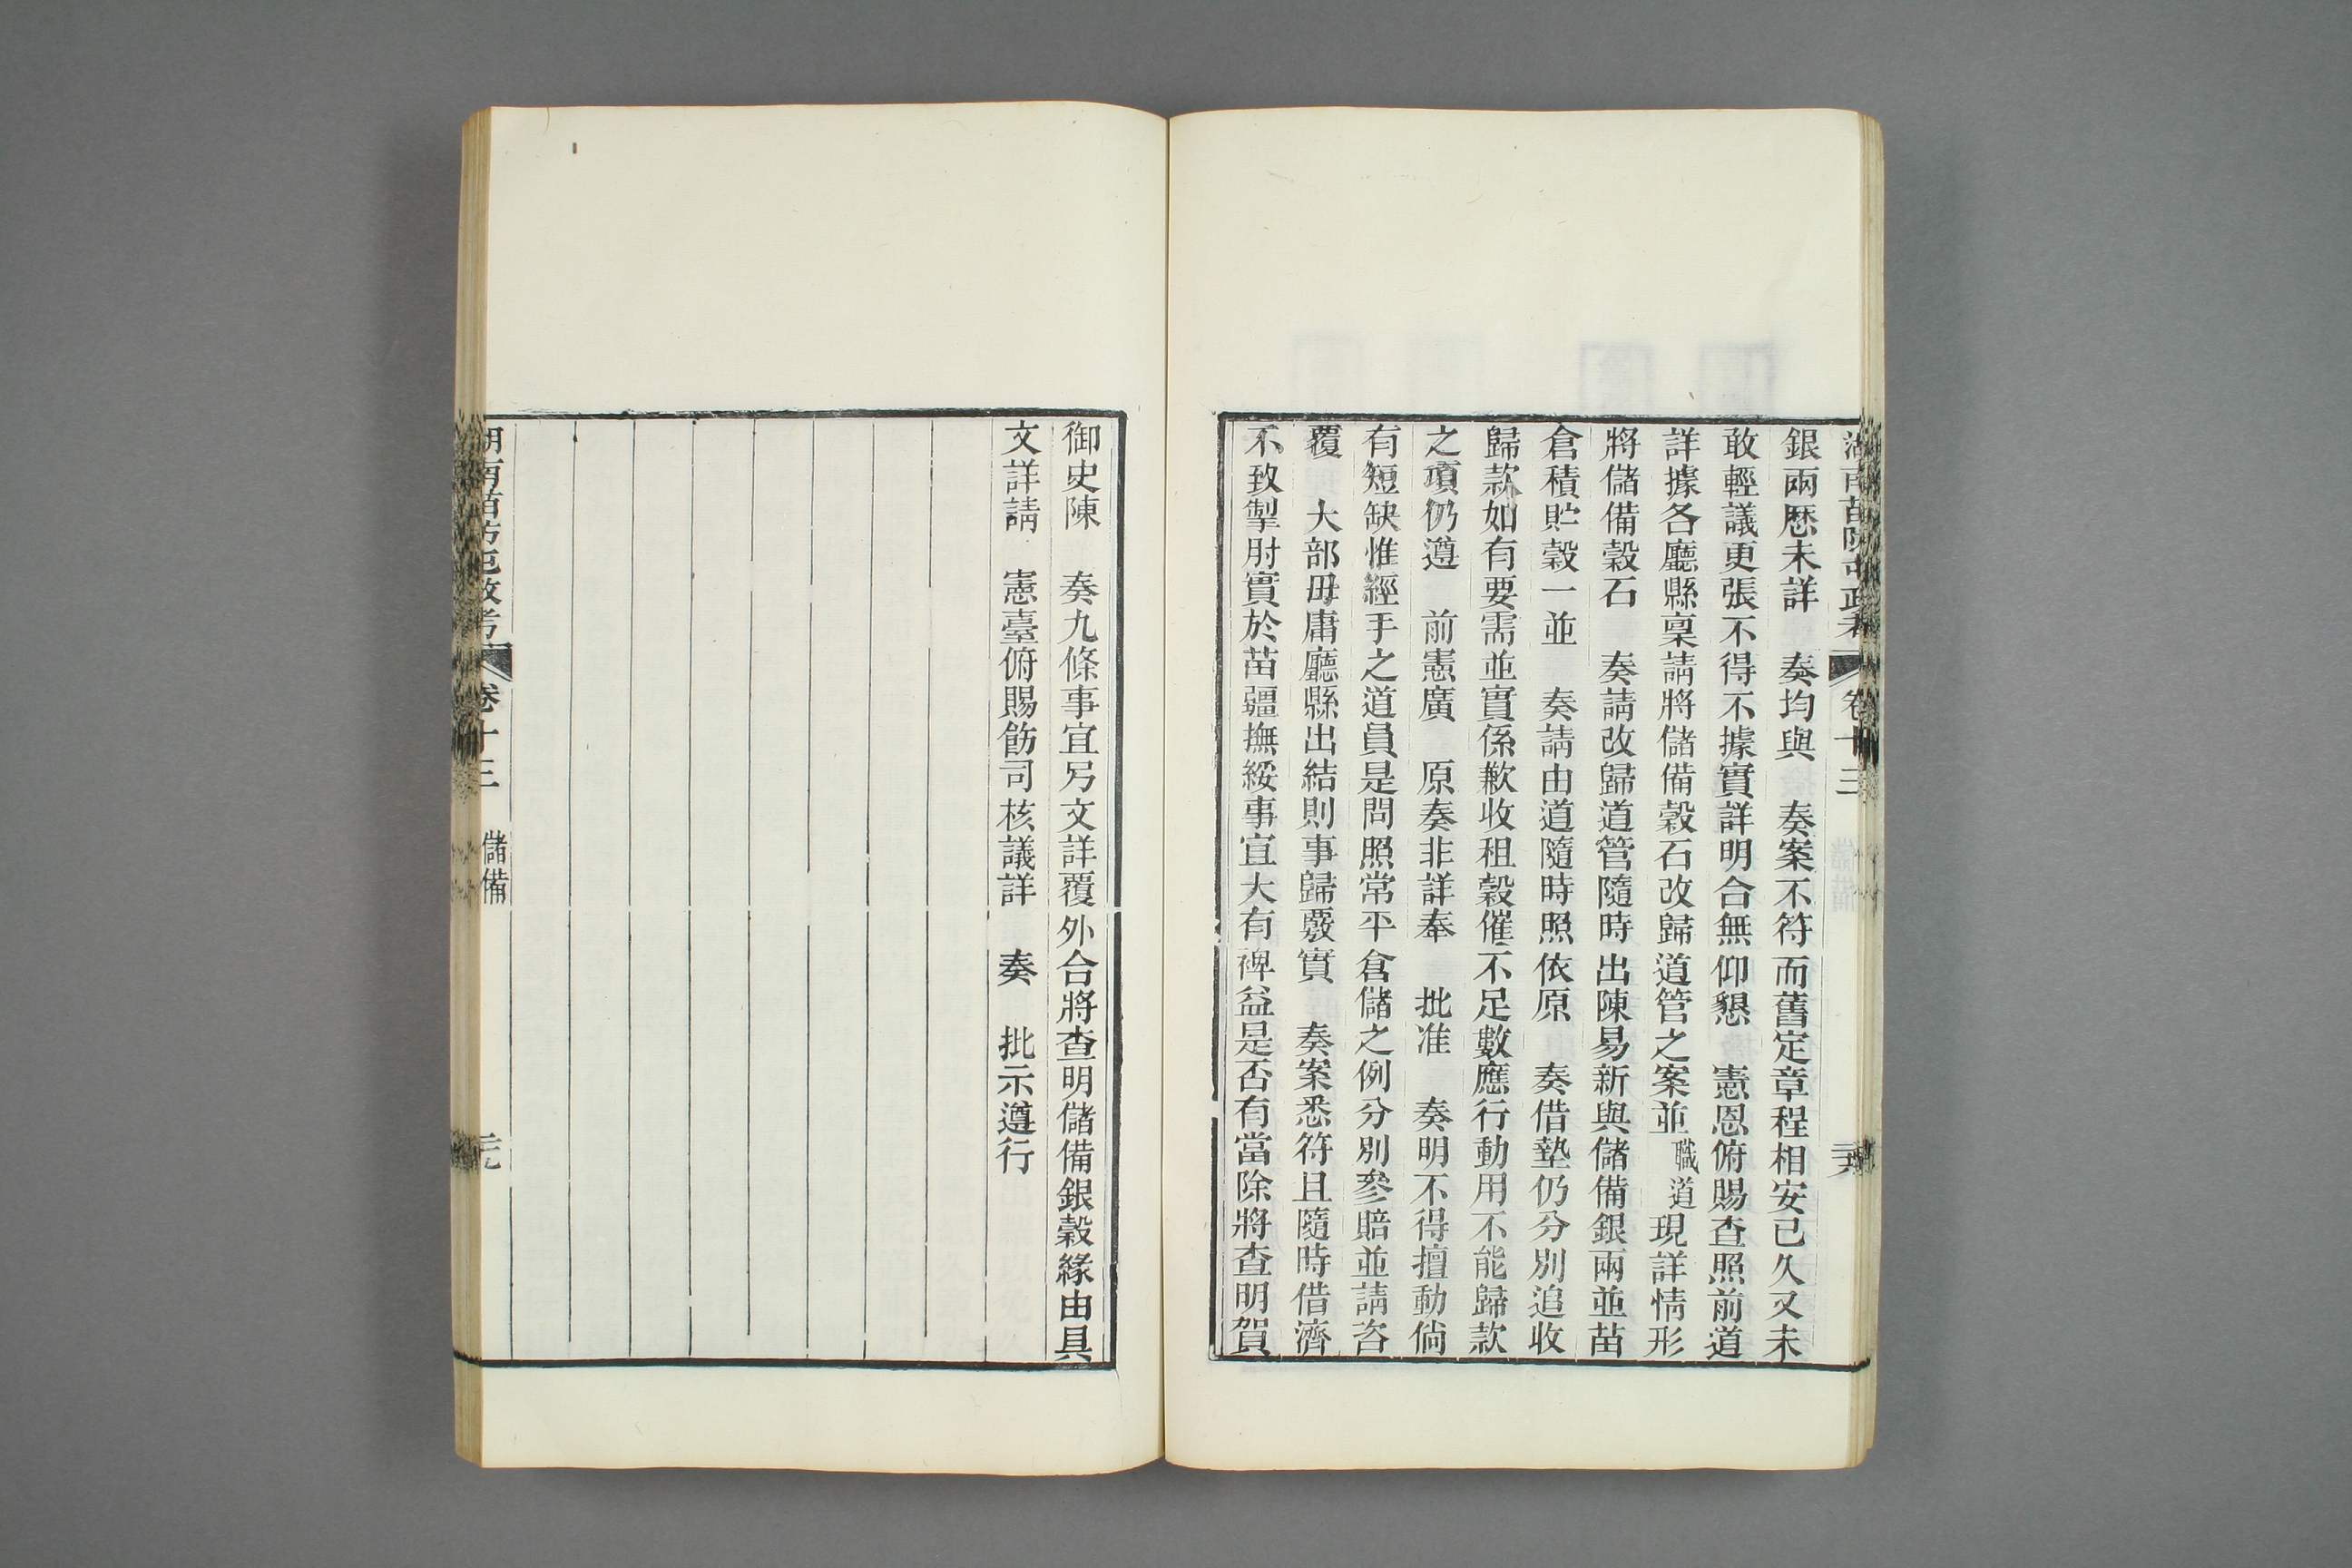 銀兩歷未詳　奏均與　奏案不符而舊定章程相安已久又未
敢輕議更張不得不據實詳明合無仰懇　憲恩俯賜查照前道
詳據各廳縣稟請將儲備穀石改歸道管之案並職道現詳情形
將儲備穀石　奏請改歸道管隨時出陳易新與儲備銀兩並苗
倉積貯穀一並　奏請由道隨時照依原　奏借墊仍分別追收
歸款如有要需並實係歉收租穀催不足數應行動用不能歸款
之項仍遵　前憲廣　原奏非詳奉　批准　奏明不得擅動倘
有短缺惟經手之道員是問照常平倉儲之例分別參賠並請咨
覆　大部毋庸廳縣出結則事歸覈實　奏案悉符且隨時借濟
不致掣肘實於苗疆撫綏事宜大有裨益是否有當除將查明賀
御史陳　奏九條事宜另文詳覆外合將查明儲備銀穀緣由具
文詳請　憲臺俯賜飭司核議詳　奏　批示遵行
湖南苗防屯政考　卷十三　儲備